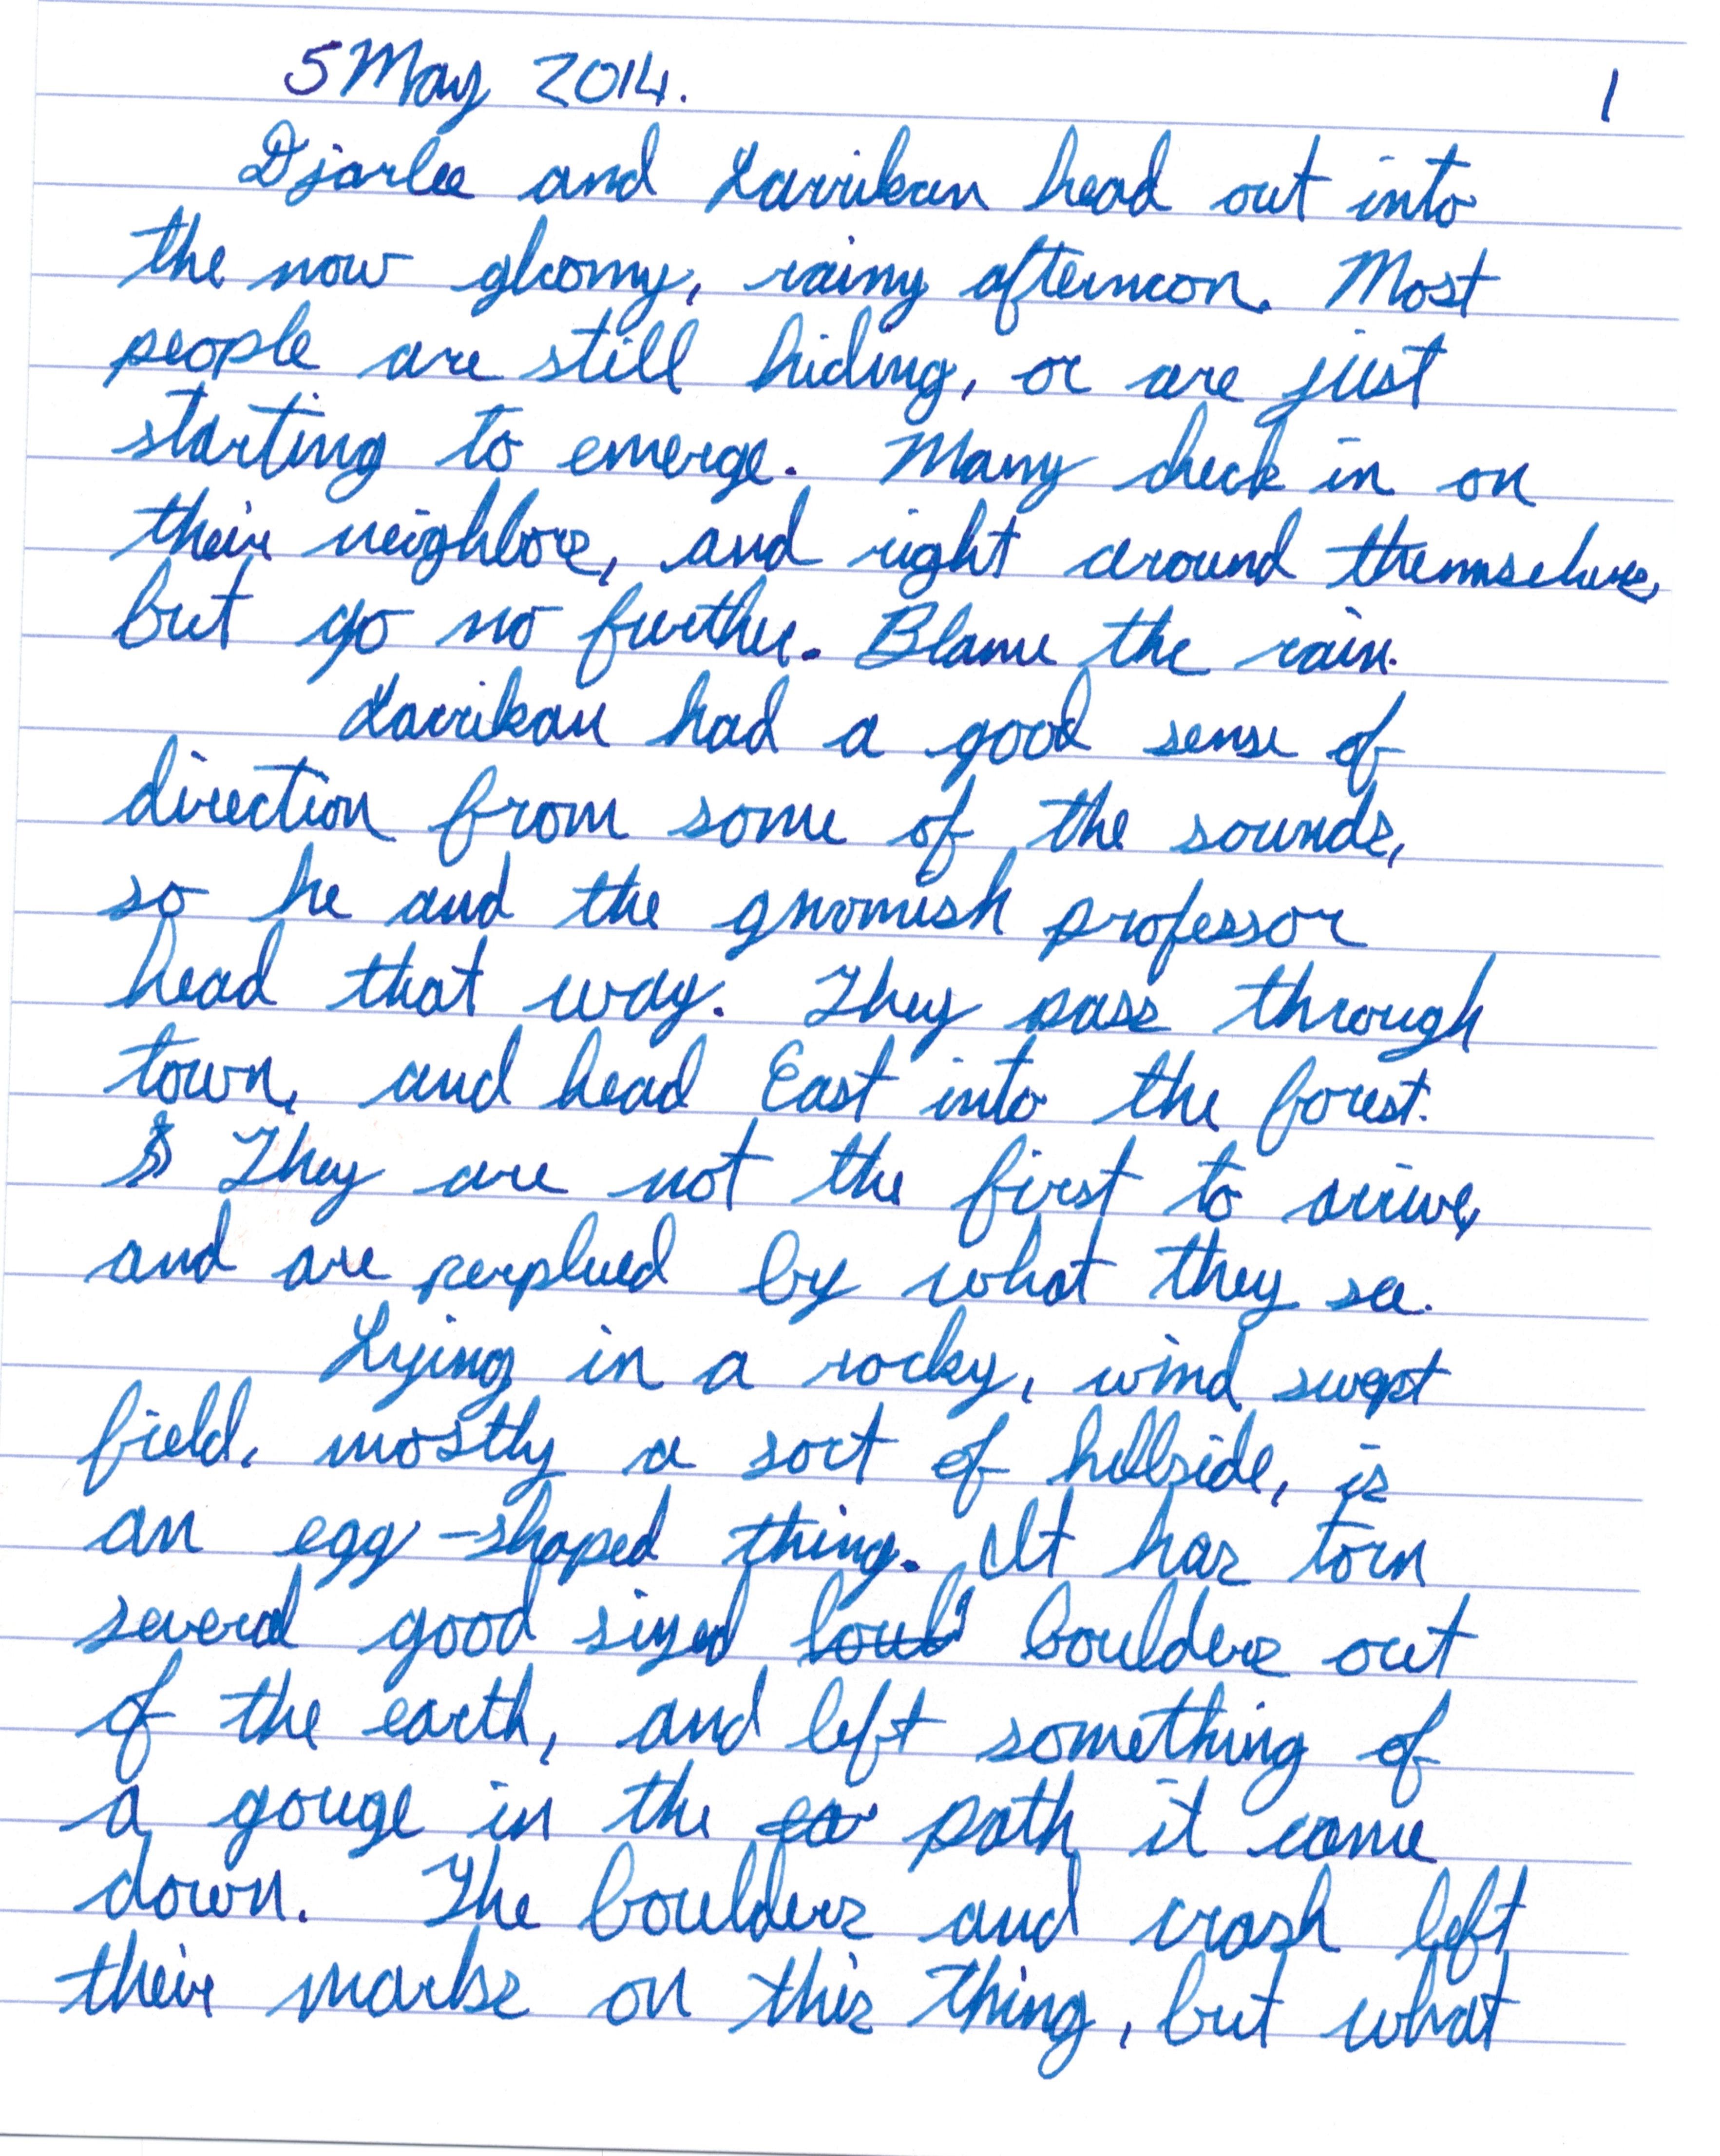 5 May 2014. 1
Djarlee and Larrikan head out into
the now gloomy, rainy afternoon. Most
people are still hiding, or are just
starting to emerge. Many check in on
their neighbors, and right around themselves,
but go no further. Blame the rain.
Larrikan had a good sense of
direction from some of the sounds,
so he and the gnomish professor
head that way. They pass through
town, and head East into the forest.
They are not the first to arrive,
and are perplexed by what they see.
Lying in a rocky, wind swept
field, mostly a sort of hillside, is
an egg-shaped thing. It has torn
several good sized boulders out
of the earth, and left something of
a gouge in the path it came
down. The boulders and crash left
their marks on this thing, but what